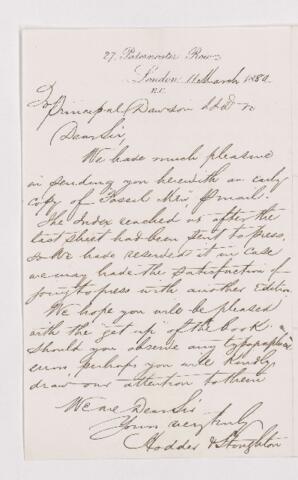 27, Paternoster Row,
London 11 March 1880.
E.C.
To
Principal Dawson LLD
Dear Sir,
We have much pleasure
in sending you herewith an early
copy of Fossil Men, p mail.
The Index reached us after the
last sheet had been sent to press,
so we have reserved it in case
we may have the satisfaction of
going to press with another Edition
We hope you will be pleased
with the get up of the book &
should you observe any
errors, perhaps you will kindly
draw our attention to them
We are Dear Sir
Yours very truly
Hodder & Stoughton